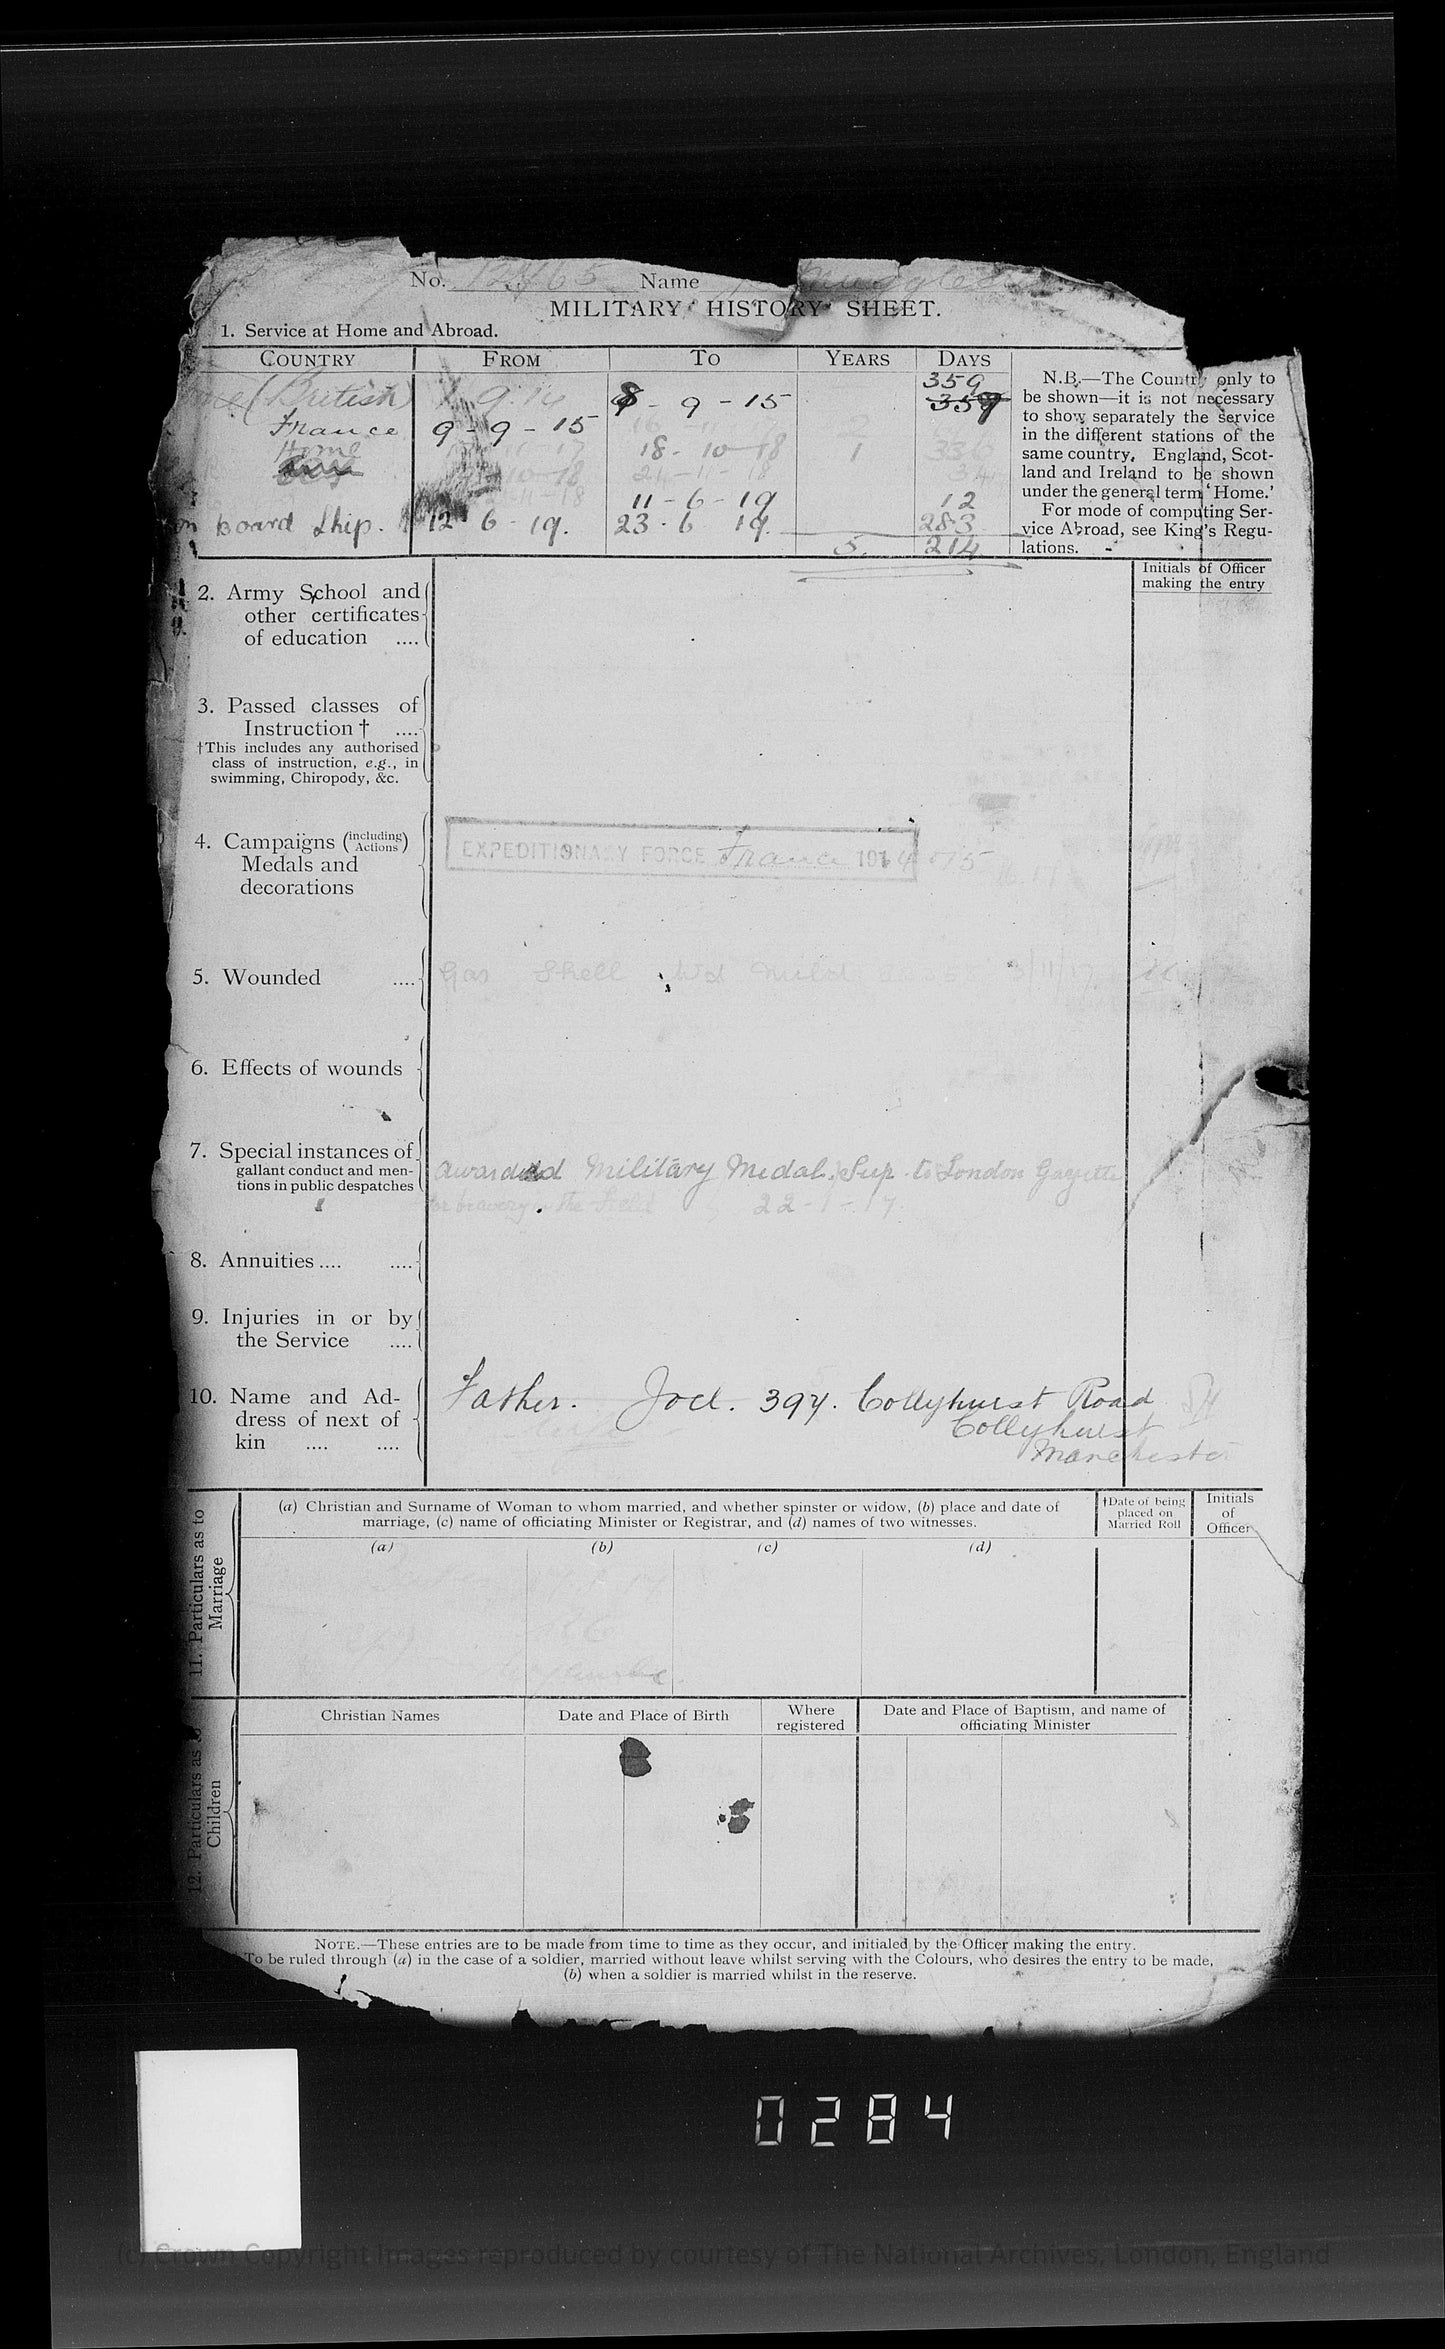 No. 12465 Name
MILITARY HISTORY SHEET.
1. Service at Home and Abroad.
COUNTRY FROM TO YEARS DAYS
359
(British) 9 8 - 9 - 15 359
France 9 - 9 - 15
Home 18 - 10 - 18 1
24 - 11 - 18
11 - 6 - 19 12
on board Ship. 12 6 - 19. 23 - 6 19. 283
5. 214
N.B.—The Country only to
be shown—it is not necessary
to show separately the service
in the different stations of the
same country. England, Scot-
land and Ireland to be shown
under the general term 'Home.'
For mode of computing Ser-
vice Abroad, see King's Regu-
lations.
Initials of Officer
making the entry
2. Army School and
other certificates
of education ....
3. Passed classes of
Instruction † ....
†This includes any authorised
class of instruction, e.g., in
swimming, Chiropody, &c.
4. Campaigns (including Actions)
Medals and
decorations
EXPEDITIONARY FORCE France 1914
5. Wounded ....
Gas Shell Wd Mild 3/11/17
6. Effects of wounds
7. Special instances of
gallant conduct and men-
tions in public despatches
awarded Military Medal. Sup. to London Gazette
for bravery in the Field 22 - 1 - 17
8. Annuities .... ....
9. Injuries in or by
the Service ....
10. Name and Ad-
dress of next of
kin .... ....
Father. Joel. 397. Collyhurst Road
Collyhurst
Manchester
11. Particulars as to
Marriage
(a) Christian and Surname of Woman to whom married, and whether spinster or widow, (b) place and date of
marriage, (c) name of officiating Minister or Registrar, and (d) names of two witnesses.
†Date of being
placed on
Married Roll
Initials
of
Officer
(a) (b) (c) (d)
12. Particulars as to
Children
Christian Names Date and Place of Birth Where
registered
Date and Place of Baptism, and name of
officiating Minister
NOTE.—These entries are to be made from time to time as they occur, and initialed by the Officer making the entry.
To be ruled through (a) in the case of a soldier, married without leave whilst serving with the Colours, who desires the entry to be made,
(b) when a soldier is married whilst in the reserve.
0284
(c) Crown Copyright Images reproduced by courtesy of The National Archives, London, England